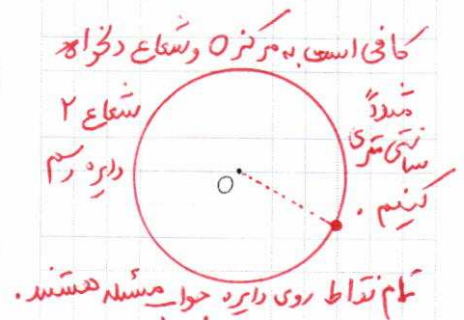 کافی است به مرکز O و شعاع دلخواه
مثلاً شعاع ۲
سانتی متری دایره رسم
کنیم .
O
تمام نقاط روی دایره جواب مسئله هستند .